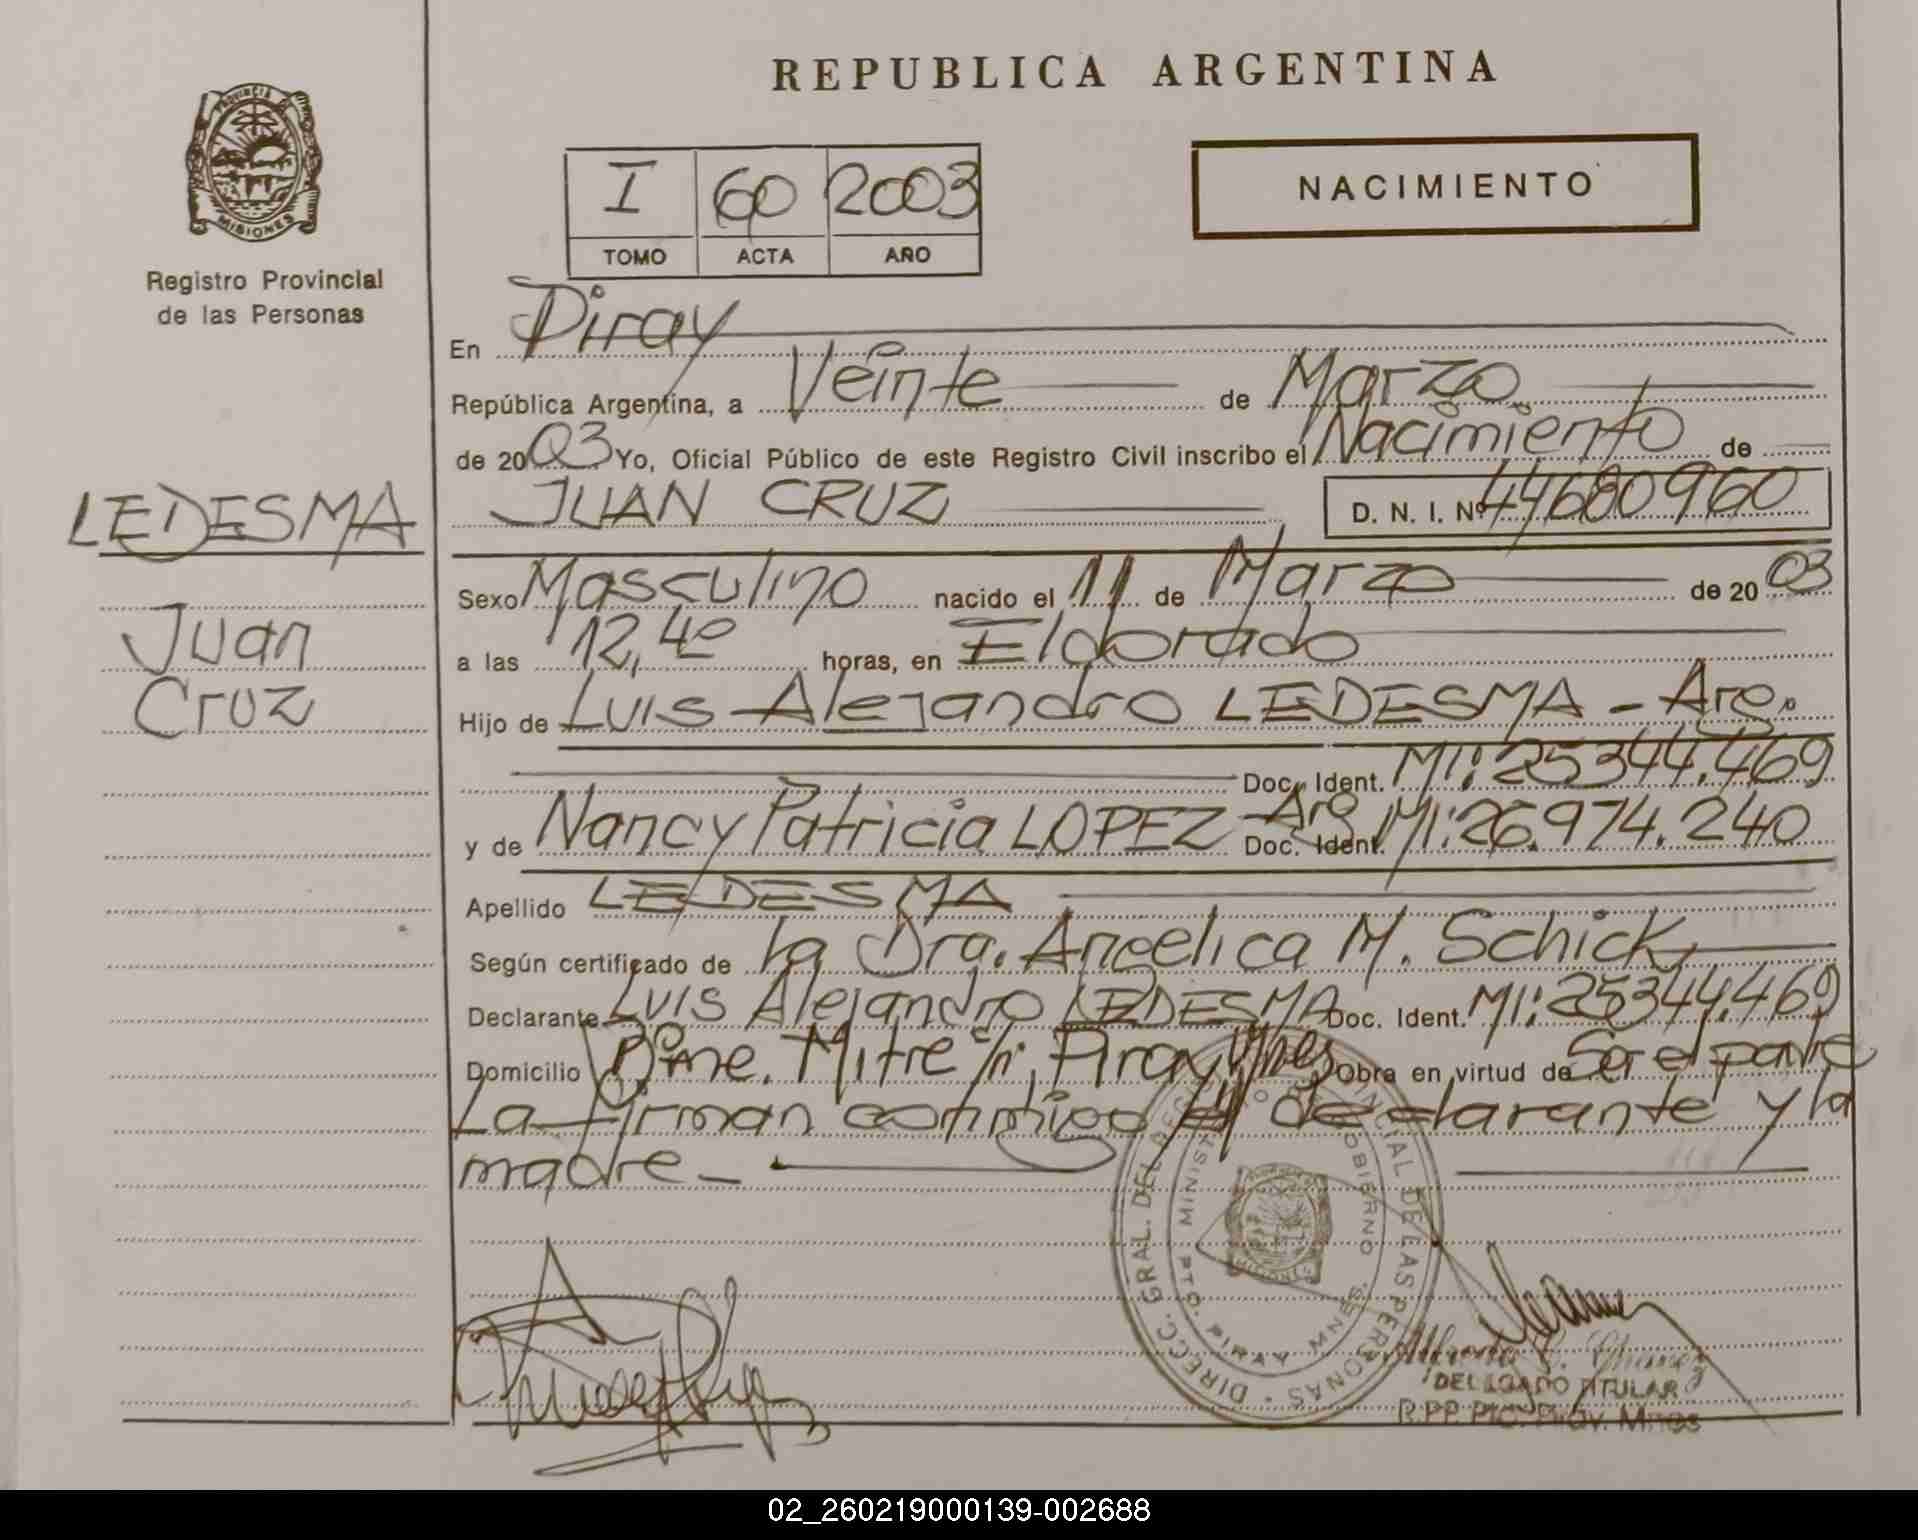 REPUBLICA ARGENTINA
PROVINCIA DE
MISIONES
Registro Provincial
de las Personas
I 60 2003
TOMO ACTA AÑO
NACIMIENTO
En Piray
República Argentina, a Veinte de Marzo
de 2003 Yo, Oficial Público de este Registro Civil inscribo el Nacimiento de
JUAN CRUZ D. N. I. Nº 44680960
LEDESMA
Juan
Cruz
Sexo Masculino nacido el 11 de Marzo de 2003
a las 12,40 horas, en Eldorado
Hijo de Luis Alejandro LEDESMA - Arg.
Doc. Ident. MI: 25344.469
y de Nancy Patricia LOPEZ Arg Doc. Ident. MI: 26.974.240
Apellido LEDESMA
Según certificado de la Dra. Angelica M. Schick
Declarante Luis Alejandro LEDESMA Doc. Ident. MI: 25344.469
Domicilio Bme. Mitre s/n, Piray Mnes Obra en virtud de Ser el padre
La firman conmigo el declarante y la
madre -
DIRECC. GRAL. DEL PROVINCIAL DE LAS PERSONAS
MINIST GOBIERNO
PTO. PIRAY MNES.
DELEGADO TITULAR
R.P.P. Pto. Piray. Mnes
02_260219000139-002688